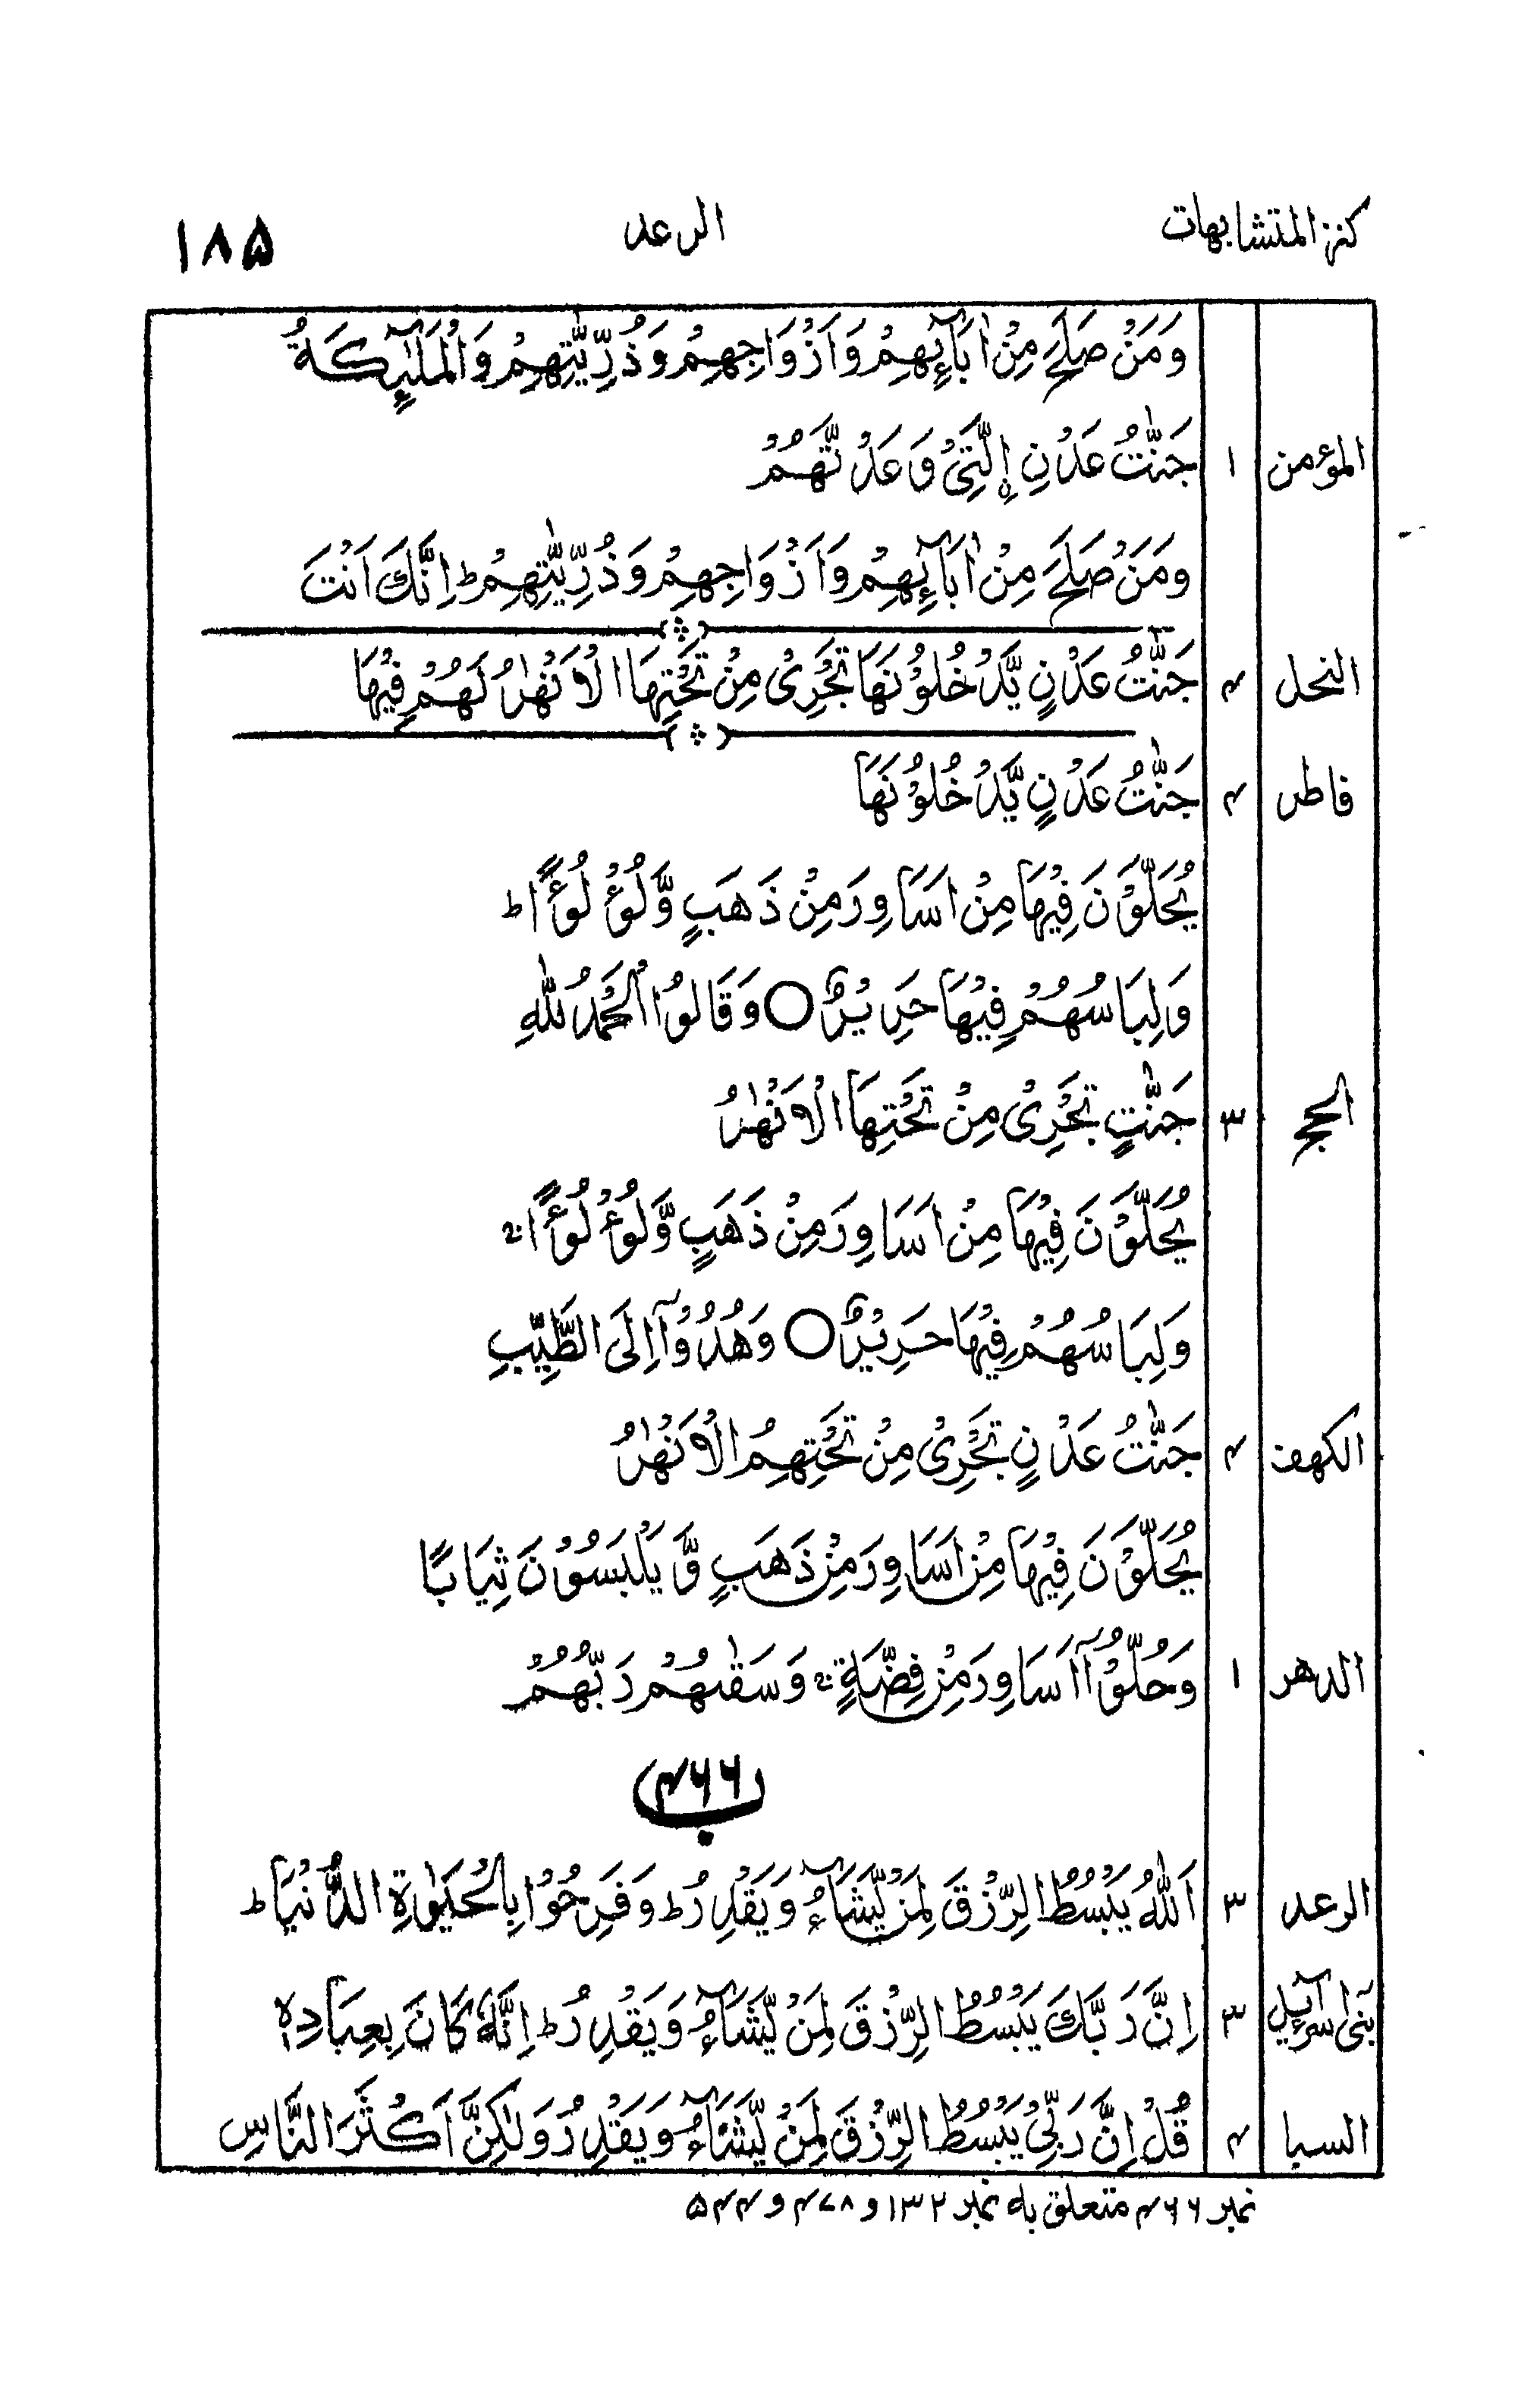 كنز المتشابهات الرعد ۱۸۵
وَمَنْ صَلَحَ مِنْ اٰبَآئِهِمْ وَاَزْوَاجِهِمْ وَذُرِّيّٰتِهِمْ وَالْمَلٰٓئِكَةُ
المؤمن ۱ جَنّٰتُ عَدْنِ اِۨلَّتِیْ وَعَدْتَّهُمْ
وَمَنْ صَلَحَ مِنْ اٰبَآئِهِمْ وَاَزْوَاجِهِمْ وَذُرِّيّٰتِهِمْ ؕ اِنَّكَ اَنْتَ
النحل ۴ جَنّٰتُ عَدْنٍ يَّدْخُلُوْنَهَا تَجْرِیْ مِنْ تَحْتِهَا الْاَنْهٰرُ لَهُمْ فِيْهَا
فاطر ۴ جَنّٰتُ عَدْنٍ يَّدْخُلُوْنَهَا
يُحَلَّوْنَ فِيْهَا مِنْ اَسَاوِرَ مِنْ ذَهَبٍ وَّلُؤْلُؤًا ؕ
وَلِبَاسُهُمْ فِيْهَا حَرِيْرٌ ○ وَقَالُوا الْحَمْدُ لِلّٰهِ
الحج ۳ جَنّٰتٍ تَجْرِیْ مِنْ تَحْتِهَا الْاَنْهٰرُ
يُحَلَّوْنَ فِيْهَا مِنْ اَسَاوِرَ مِنْ ذَهَبٍ وَّلُؤْلُؤًا
وَلِبَاسُهُمْ فِيْهَا حَرِيْرٌ ○ وَهُدُوْۤا اِلَى الطَّيِّبِ
الكهف ۴ جَنّٰتُ عَدْنٍ تَجْرِیْ مِنْ تَحْتِهِمُ الْاَنْهٰرُ
يُحَلَّوْنَ فِيْهَا مِنْ اَسَاوِرَ مِنْ ذَهَبٍ وَّيَلْبَسُوْنَ ثِيَابًا
الدهر ۱ وَحُلُّوْۤا اَسَاوِرَ مِنْ فِضَّةٍ وَسَقٰهُمْ رَبُّهُمْ
ب۴۶۶
الرعد ۳ اَللّٰهُ يَبْسُطُ الرِّزْقَ لِمَنْ يَّشَآءُ وَيَقْدِرُ ؕ وَفَرِحُوْا بِالْحَيٰوةِ الدُّنْيَا ؕ
بنی اسرآئیل ۳ اِنَّ رَبَّكَ يَبْسُطُ الرِّزْقَ لِمَنْ يَّشَآءُ وَيَقْدِرُ ؕ اِنَّهٗ كَانَ بِعِبَادِهٖ
السبا ۴ قُلْ اِنَّ رَبِّیْ يَبْسُطُ الرِّزْقَ لِمَنْ يَّشَآءُ وَيَقْدِرُ وَلٰكِنَّ اَكْثَرَ النَّاسِ
نمبر ۴۶۶ متعلق به نمبر ۱۳۲ و ۴۷۸ و ۵۴۴